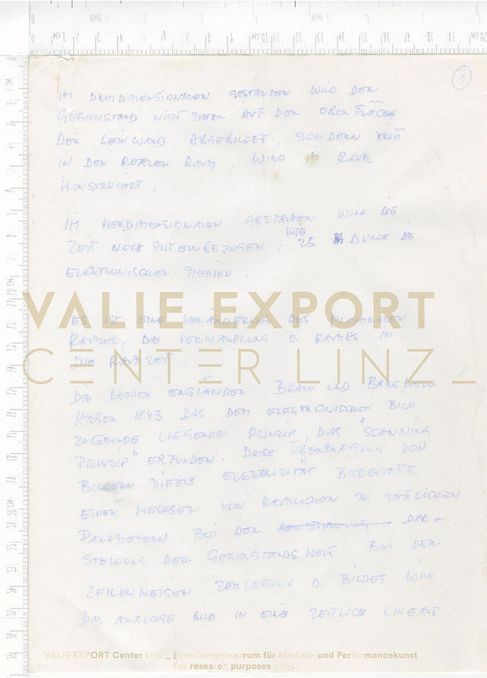 1
IM DREIDIMENSIONALEN GESTALTEN WIRD DER
GEGENSTAND NICHT MEHR AUF DER OBERFLÄCHE
DER LEINWAND ABGEBILDET, SONDERN TRITT
IN DEN REALEN RAUM, WIRD IM RAUM
KONSTRUIERT.
IM VIERDIMENSIONALEN GESTALTEN WIRD DIE
ZEIT NOCH MITEINBEZOGEN, WIE ZB DURCH DIE
ELEKTRONISCHEN MEDIEN.
VALIE EXPORT
ES IST EINE VERÄNDERUNG DES
RAUMES, DIE VERWANDLUNG D. RAUMES IN
CENTER LINZ_
DIE RAUMZEIT.
DIE BEIDEN ENGLÄNDER BRAIN UND BAKEWELL
HABEN 1843 DAS DEM ELEKTRONISCHEN BILD
ZUGRUNDE LIEGENDE PRINZIP, DAS "SCANNING
PRINZIP" ERFUNDEN. DIESE ÜBERTRAGUNG VON
BILDERN MITTELS ELEKTRIZITÄT BEDEUTETE
EINEN WECHSEL VON RÄUMLICHEN ZU ZEITLICHEN
PARAMETERN BEI DER DAR-
STELLUNG DER GEGENSTANDSWELT. BEI DER
ZEILENWEISEN ZERLEGUNG D. BILDES WIRD
DAS ANALOGE BILD IN EINE ZEITLICH LINEARE
VALIE EXPORT Center Linz _ Forschungszentrum für Medien- und Performancekunst
For research purposes only.